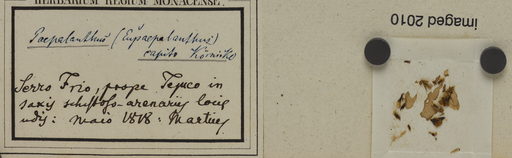 HERBARIUM REGIUM MONACENSE.
Paepalanthus (Eupaepalanthus)
capito Körnicke
Serro Frio, prope Tejuco in
saxis schistoso-arenariis locis
udis: maio 1818: Martius
imaged 2010